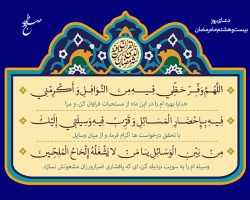 دعای روز
بیست و هشتم ماه رمضان
اللَّهُمَّ وَفِّرْ حَظِّي فِيهِ مِنَ النَّوَافِلِ وَ أَكْرِمْنِي
خدایا بهره ام را در این ماه از مستحبات فراوان کن، و مرا
فِيهِ بِإِحْضَارِ الْمَسَائِلِ وَ قَرِّبْ فِيهِ وَسِيلَتِي إِلَيْكَ
با تحقق درخواست ها اکرام فرما، و از میان وسایل
مِنْ بَيْنِ الْوَسَائِلِ يَا مَنْ لا يَشْغَلُهُ إِلْحَاحُ الْمُلِحِّينَ
وسیله ام را به سویت نزدیک کن، ای که پافشاری اصرارورزان مشغولش نسازد.